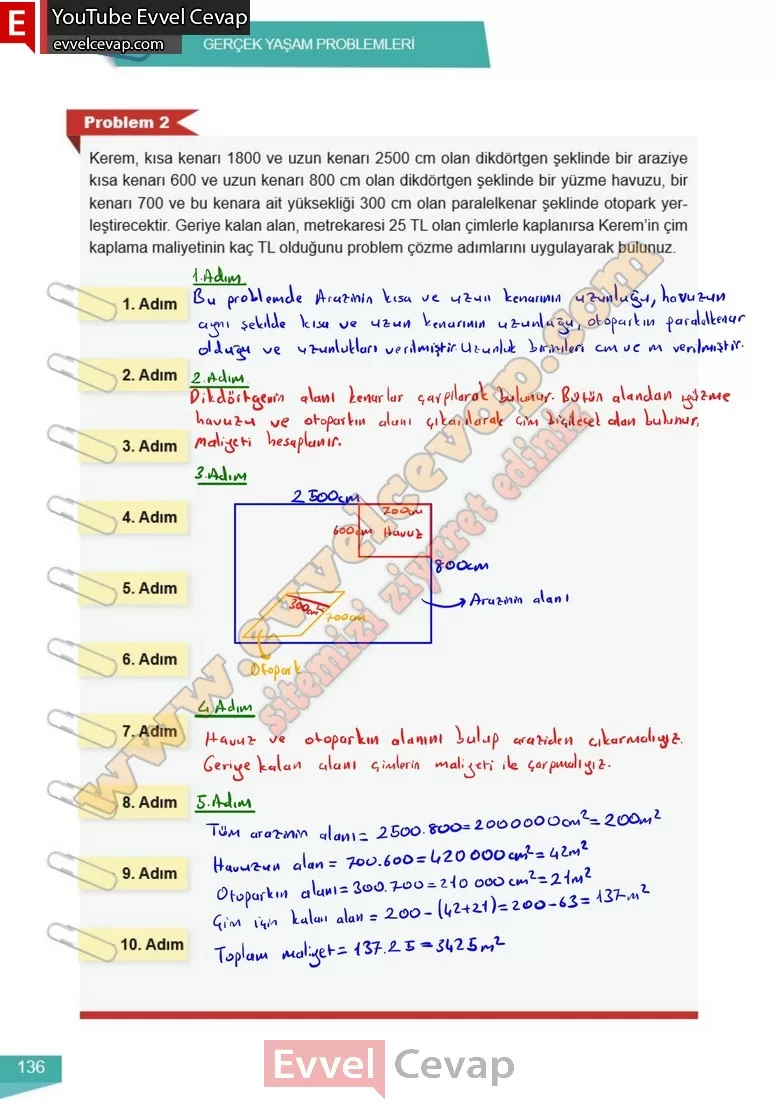 E YouTube Evvel Cevap
evvelcevap.com
GERÇEK YAŞAM PROBLEMLERİ
Problem 2
Kerem, kısa kenarı 1800 ve uzun kenarı 2500 cm olan dikdörtgen şeklinde bir araziye
kısa kenarı 600 ve uzun kenarı 800 cm olan dikdörtgen şeklinde bir yüzme havuzu, bir
kenarı 700 ve bu kenara ait yüksekliği 300 cm olan paralelkenar şeklinde otopark yer-
leştirecektir. Geriye kalan alan, metrekaresi 25 TL olan çimlerle kaplanırsa Kerem'in çim
kaplama maliyetinin kaç TL olduğunu problem çözme adımlarını uygulayarak bulunuz.
1.Adım
1. Adım
Bu problemde Arazinin kısa ve uzun kenarının uzunluğu, havuzun
aynı şekilde kısa ve uzun kenarının uzunluğu, otoparkın paralelkenar
olduğu ve uzunlukları verilmiştir. Uzunluk birimleri cm ve m verilmiştir.
2. Adım
2.Adım
Dikdörtgenin alanı kenarlar çarpılarak bulunur. Bütün alandan yüzme
havuzu ve otoparkın alanı çıkarılarak çim biçilecek alan bulunur,
maliyeti hesaplanır.
3. Adım
3.Adım
2500cm
700cm
600cm Havuz
4. Adım
800cm
5. Adım
Arazinin alanı
300cm
700cm
Otopark
6. Adım
4.Adım
7. Adım
Havuz ve otoparkın alanını bulup araziden çıkarmalıyız.
Geriye kalan alanı çimlerin maliyeti ile çarpmalıyız.
8. Adım
5.Adım
Tüm arazinin alanı = 2500.800=2000000cm²=200m²
Havuzun alan = 700.600=420 000cm²=42m²
9. Adım
Otoparkın alanı=300.700=210 000cm²=21m²
Çim için kalan alan = 200-(42+21)=200-63=137m²
10. Adım
Toplam maliyet= 137.25=3425m²
www.evvelcevap.com
sitemizi ziyaret ediniz
136
Evvel Cevap